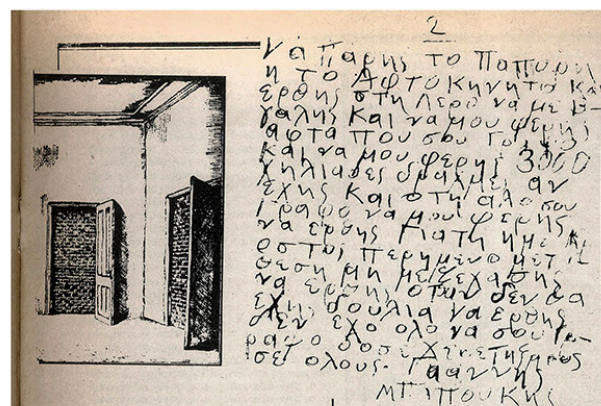 2
να παρης το παπορι
η το αφτοκηνητο και
ερθης στη λερο να με β-
γαλης και να μου φερης
αφτα που σου
και να μου φερης 3000
χηλιαδες δραχμες αν
εχης και οτη αλο σου
γραφο να μου φερης
να ερθης γιατη ημε
περημενο μετ
θεση μη με ξεχασης
να ερθης οταν δεν θα
εχης δουλια να ερθης
δεν εχο ολο να σου γ-
ραψο δοσε χερετησμους
σε ολους. Γιαννης
ΜΠΙΠΟΥΚΗΣ